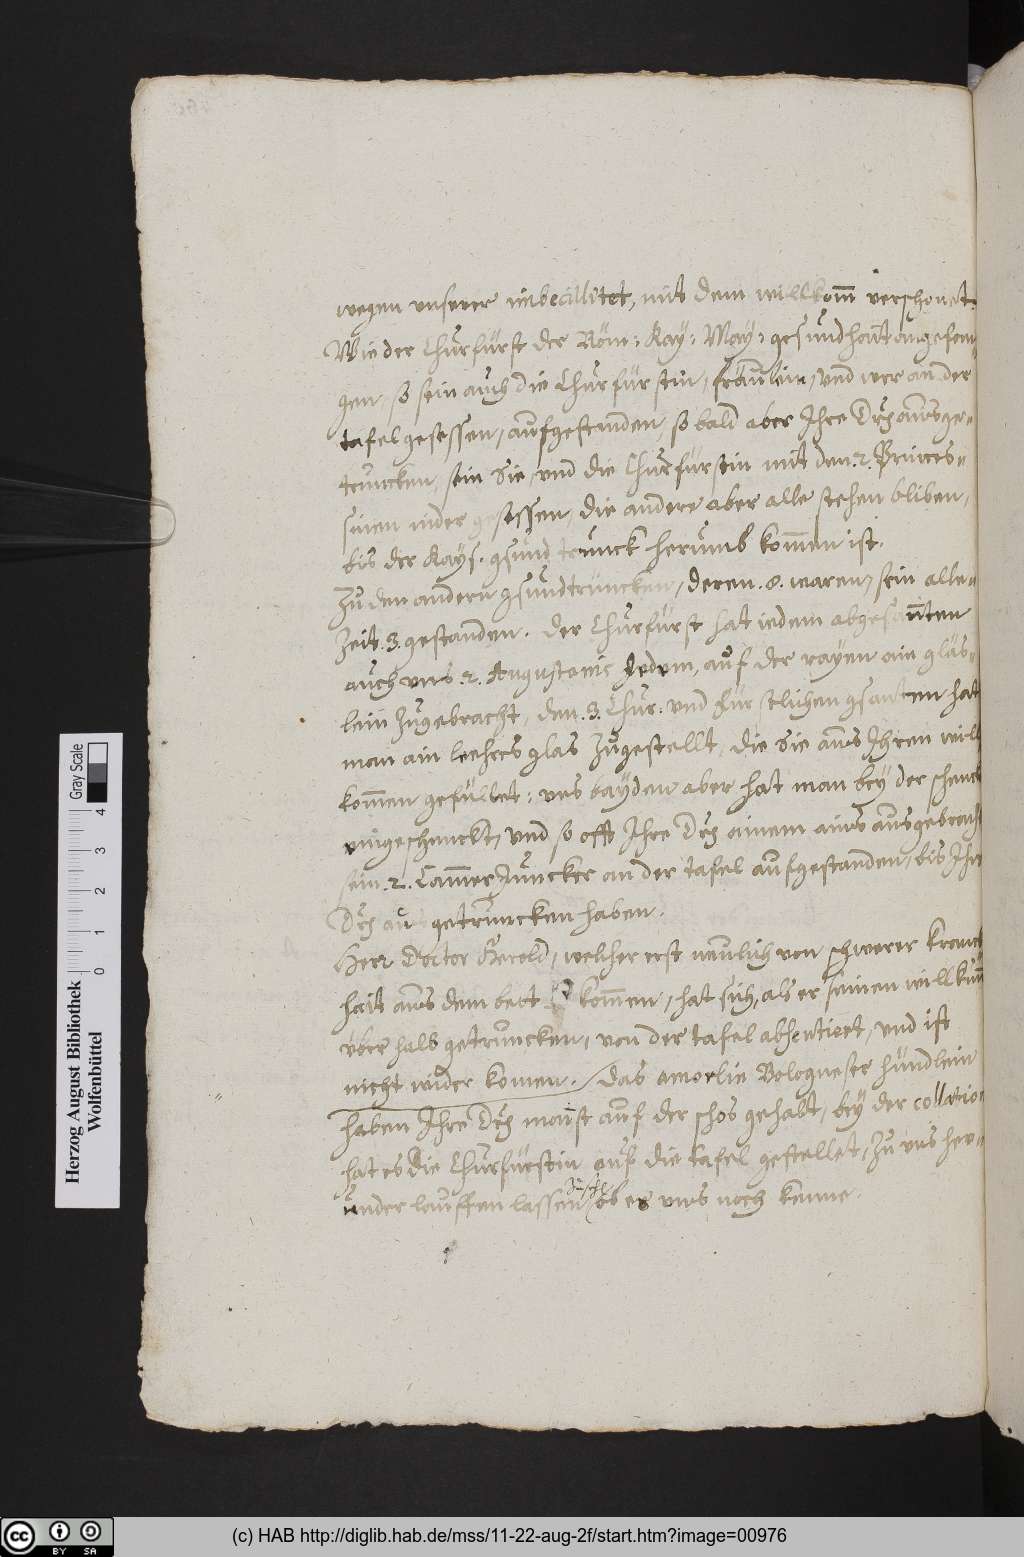 wegen unserer imbecillitet, mit dem willkom̄ verschonet.
Wie der Churfürst der Röm: Kay: May: gesundhait angefan„
gen, so sein auch die Churfürstin, fräulein, und wer an der
tafel gesessen, aufgestanden, so bald aber Ihre Drh ausge„
truncken, sein Sie, und die Churfürstin mit den .2. Princes„
sinen nider gesessen, die andere aber alle stehen bliben,
bis der Kays. gsundtrunck herumb kom̄en ist.
Zu den andern gsundtruncken, deren .8. waren, sein alle„
Zeit .3. gestanden. Der Churfürst hat iedem abgesanten
auch uns .2. Augustanis jedem, auf der rayen ain gläs„
lein zugebracht, den .3. Chur: und fürstlichen gsanten hat
man ain leehres glas zugestellt, die Sie aus Ihren will
kom̄en gefüllet: uns bayden aber hat man bey der schenck
eingeschenckt, und so offt Ihre Drh ainem ains ausgebracht
sein .2. Cam̄er Juncker an der tafel aufgestanden, bis Ihre
Drh au getruncken haben.
Herr Doctor Herold, welcher erst neulich von schwerer kranck
hait aus dem bett kom̄en, hat sich, als er seinen willkum̄
über halb getruncken, von der tafel absentiert, und ist
nicht wider komen. Das amorlin Bologneser hündlein
haben Ihre Drh maist auf der schos gehabt, bey der collation
hat es die Churfürstin auf die tafel gestellet, zu uns her„
under lauffen lassen, ob es uns noch kenne.
Herzog August Bibliothek
Wolfenbüttel
0 1 2 3 4
Gray Scale
cc BY SA
(c) HAB http://diglib.hab.de/mss/11-22-aug-2f/start.htm?image=00976